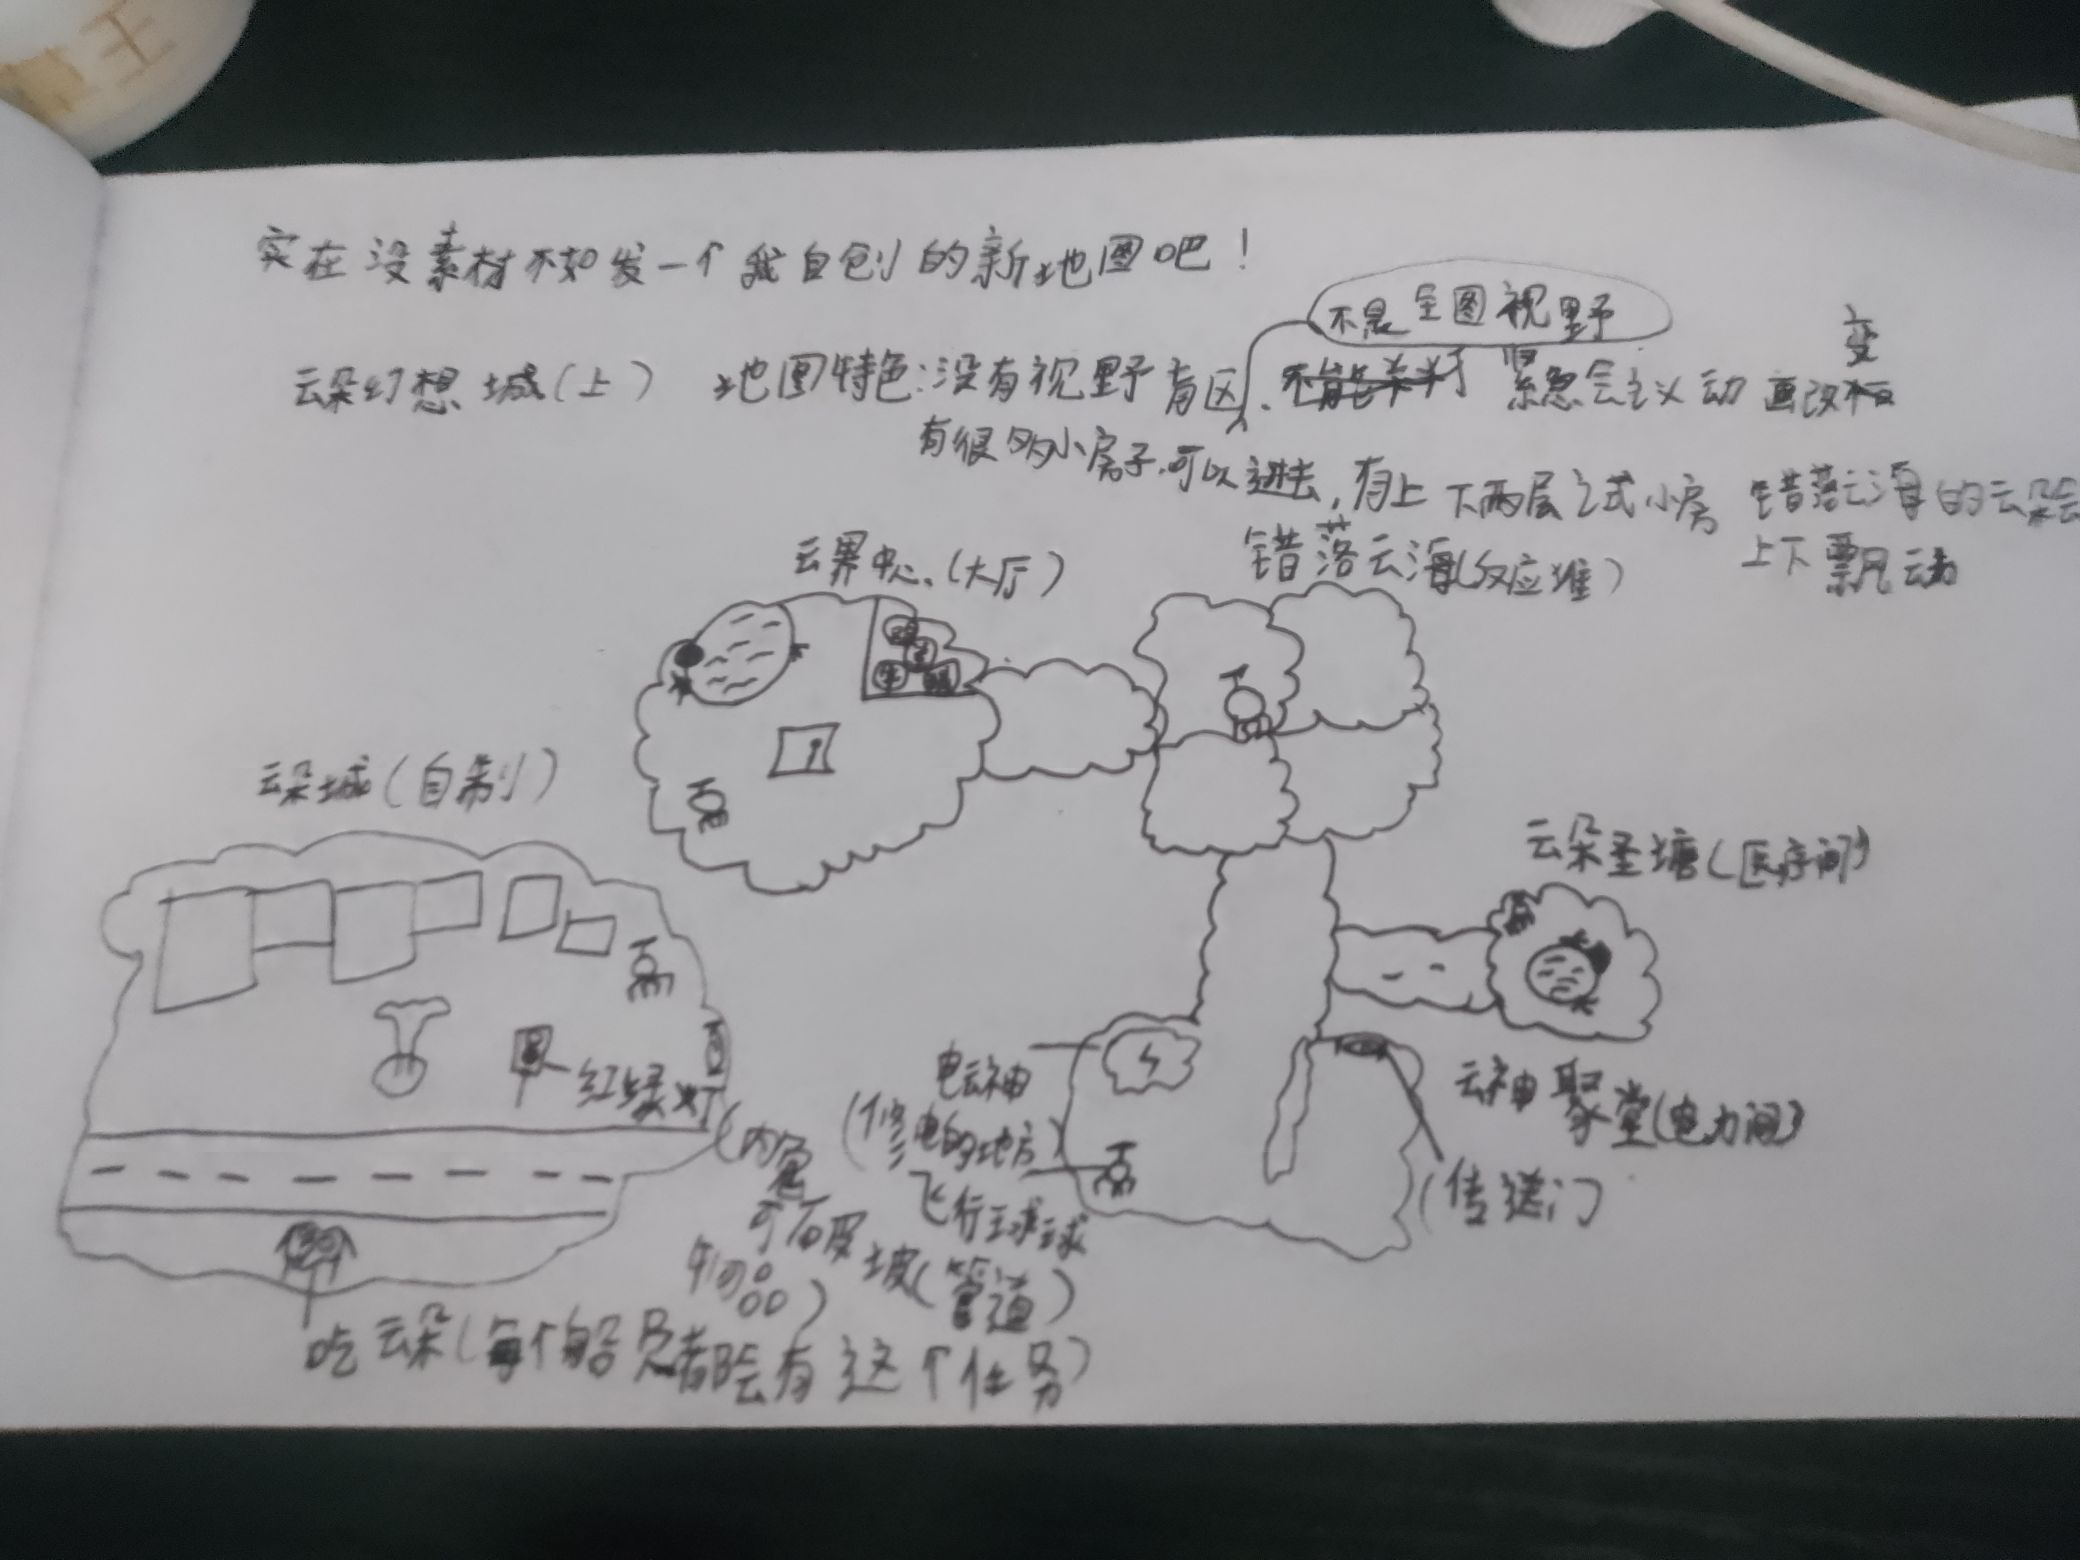 王
实在没素材不如发一个我自创的新地图吧！
不是全图视野
云朵幻想城（上） 地图特色：没有视野盲区、紧急会议动画改变
有很多小房子，可以进去，有上下两层之式小房 错落云海的云朵会
上下飘动
云界中心（大厅）
错落云海（反应堆）
云朵城（自制）
云朵圣塘（医疗间）
红绿灯
电云神
（修电的地方）
云神聚堂（电力间）
（传送门
飞行球球
（内
可
物品）
坡（管道）
吃云朵（每个船员都会有这个任务）